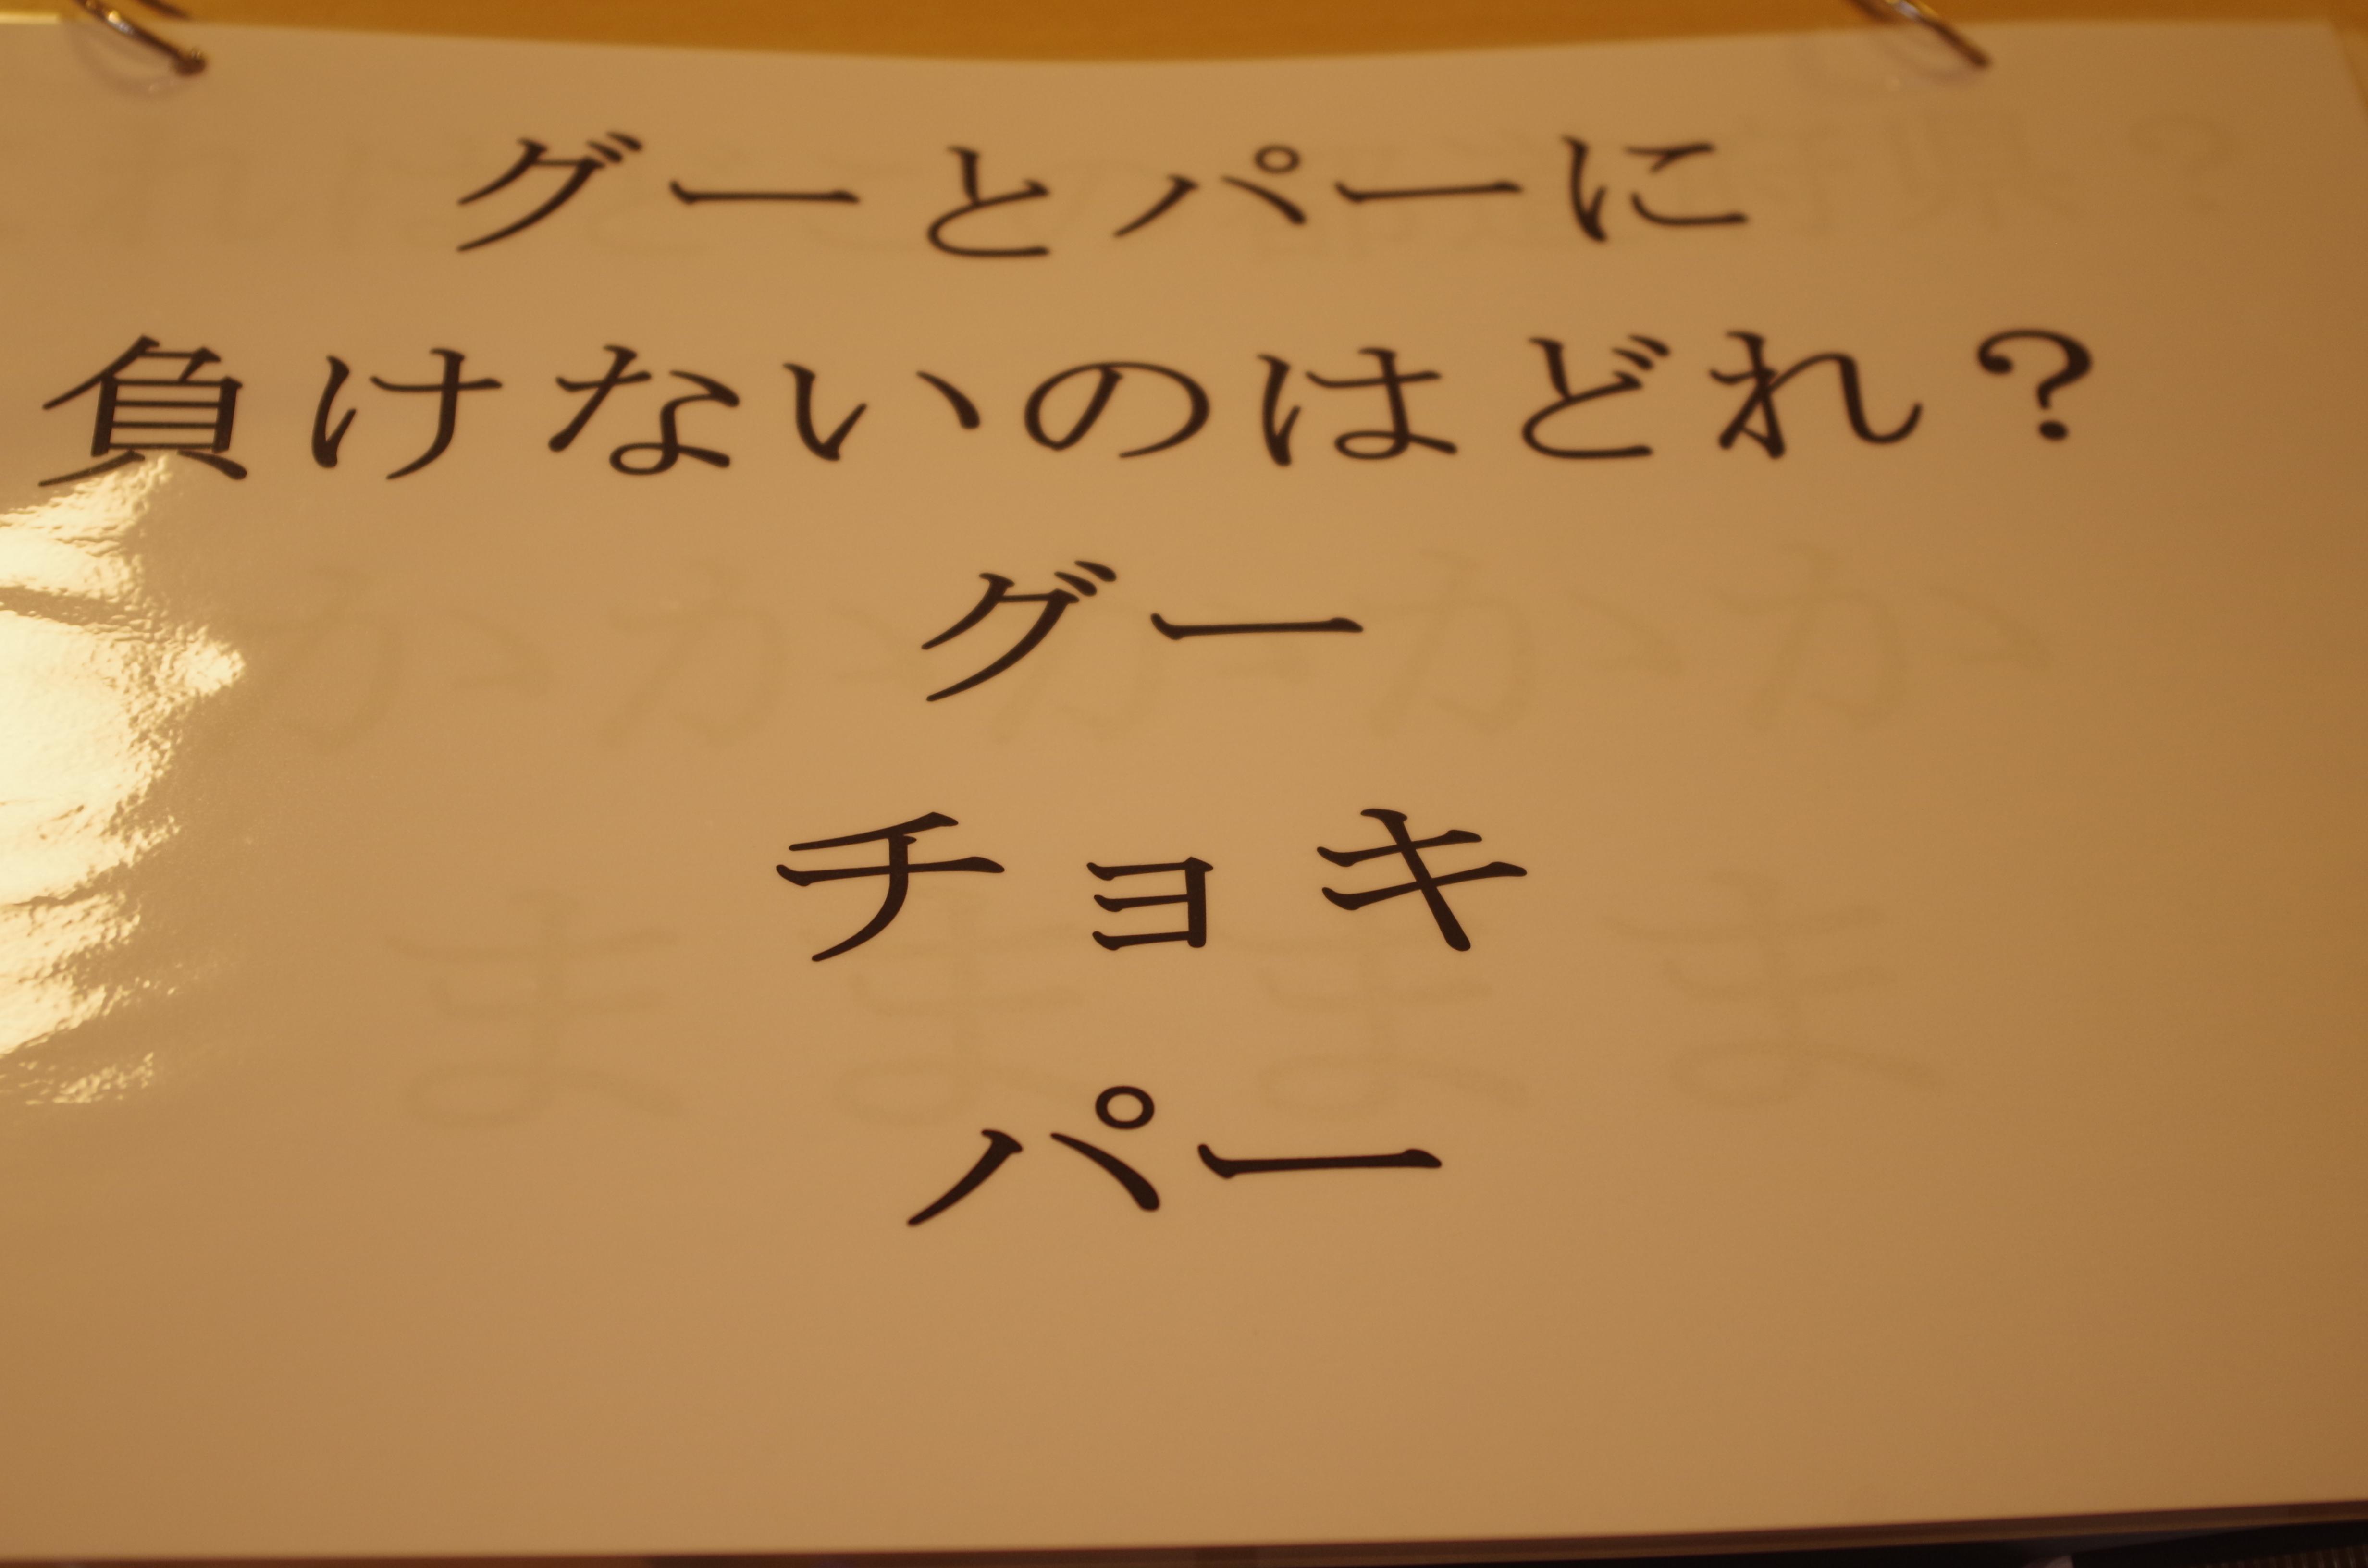 グーとパーに
負けないのはどれ？
グー
チョキ
パー